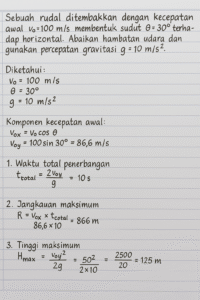 Sebuah rudal ditembakkan dengan kecepatan
awal v₀=100 m/s membentuk sudut θ=30° terha-
dap horizontal. Abaikan hambatan udara dan
gunakan percepatan gravitasi g=10 m/s².
Diketahui:
v₀ = 100 m/s
θ = 30°
g = 10 m/s²
Komponen kecepatan awal:
v₀ₓ = v₀ cos θ
v₀y = 100 sin 30° = 86,6 m/s
1. Waktu total penerbangan
t_total = 2v₀y / g = 10 s
2. Jangkauan maksimum
R = v₀ₓ × t_total = 866 m
86,6×10
3. Tinggi maksimum
H_max = v₀y² / 2g = 50² / 2×10 = 2500 / 20 = 125 m